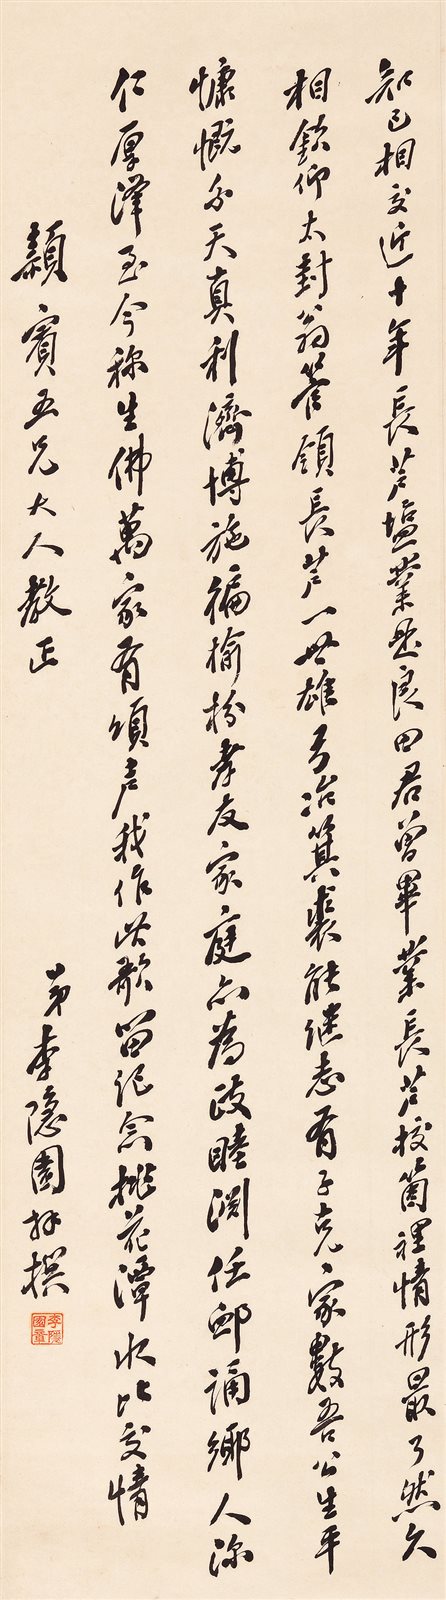 知己相交近十年長芦塩業是良田君曾畢業長芦校箇裡情形最了然久
相欽仰太封翁管領長芦一世雄弓冶箕裘能继志有子克〻家數吾公生平
慷慨尔天真利濟博施徧榆枌孝友家庭亦為政睦渊任卹誦鄉人深
仁厚澤至今称生佛萬家有頌声我作此歌留纪念桃花潭水比交情
穎賓五兄大人教正
弟李隐園拜撰
李隱園章